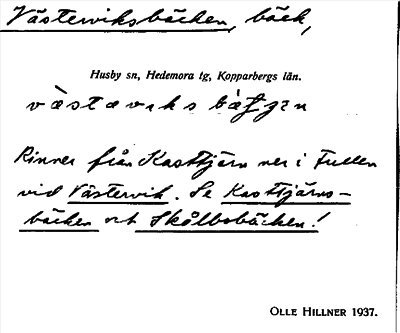 Västerviksbäcken, bäck,
Husby sn, Hedemora tg, Kopparbergs län.
Rinner från Kasttjärn ner i Fullen
vid Västervik. Se Kasttjärns-
bäcken och Skålbobäcken!
OLLE HILLNER 1937.